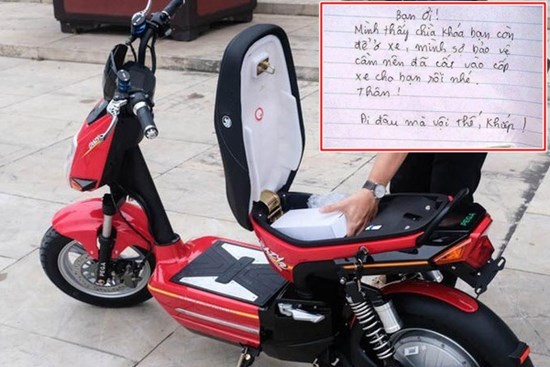 Bạn ơi!
Mình thấy chìa khóa bạn còn
để ở xe, mình sợ bảo vệ
cầm nên đã cất vào cốp
xe cho bạn rồi nhé.
Thân!
Đi đâu mà vội thế, khổ !
PEGA